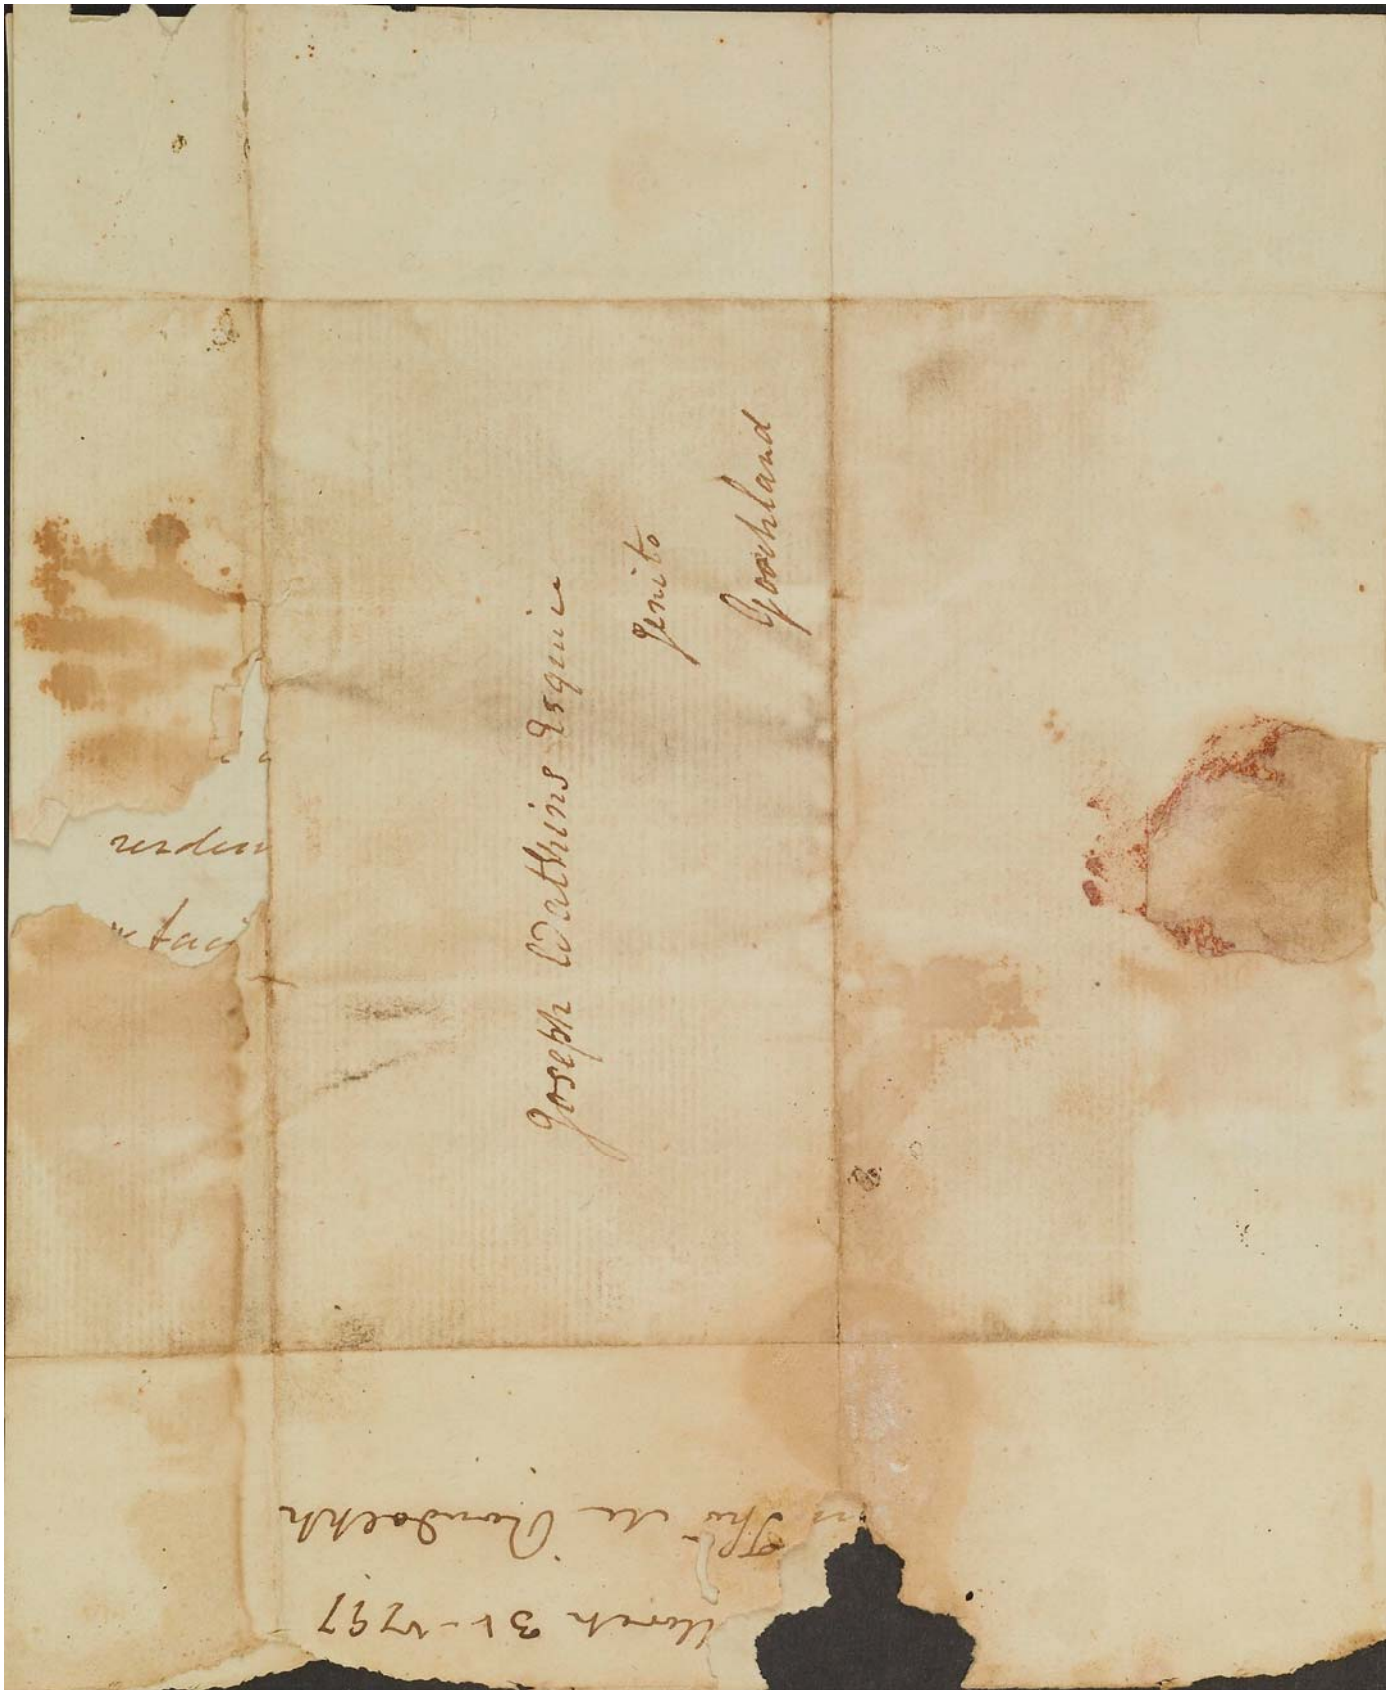 Joseph Watkins Esquire
Genito
Goochland
Tho M Randolph
March 31 - 1797